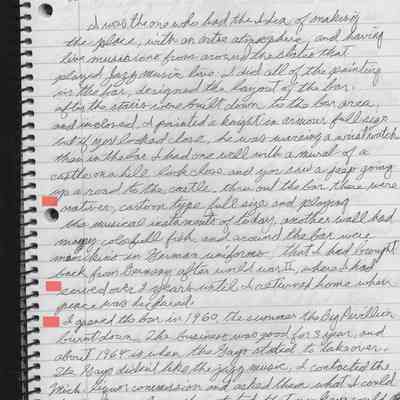 I was the one who had the idea of making
the place, with an artie atmosphere, and having
live musicians from around the states that
played Jazz music live. I did all of the painting
in the bar, designed the layout of the bar.
after the stairs were built down to the bar area,
and inclosed I painted a knight in armour full size
but if you looked close, he was wearing a wrist watch
then in the bar I had one wall with a mural of a
castle on a hill look close and you saw a jeep going
up a road to the castle. thru out the bar there were
natives, custom type full size and playing
the musical instruments of today, another wall had
many colorfull fish, and around the bar were
manikins in German uniforms that I had brought
back from Germany after world war II, where I had
served over 2 years until I returned home when
peace was declared.
I opened the bar in 1960, the summer the Big Pavillion
burnt down. The business was good for 3 year, and
about 1964 is when the Gays started to take over.
The Gays didn't like the jazz music, I contacted the
Mich. liquor commission and asked them what I could